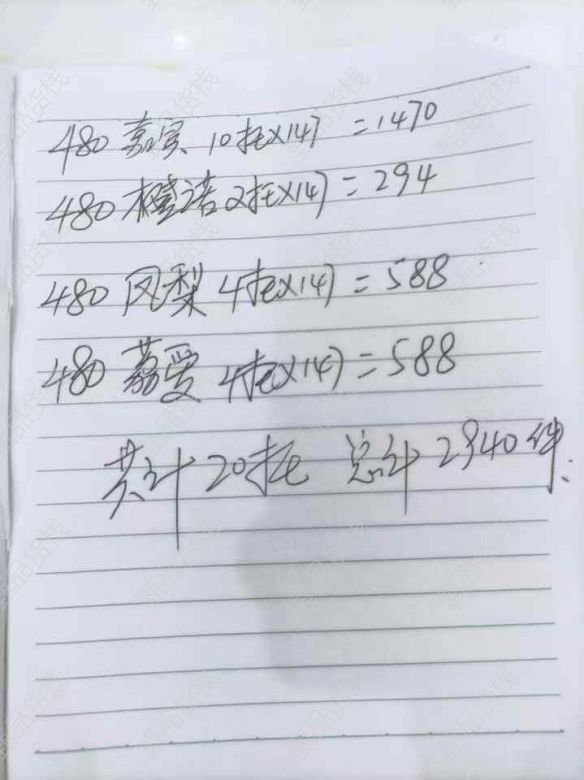 480 嘉宾 10托X147 =1470
480 橙诺 2托X147=294
480 风梨 4托X147=588
480 荔爱 4托X147=588
共计20托 总计2940件.